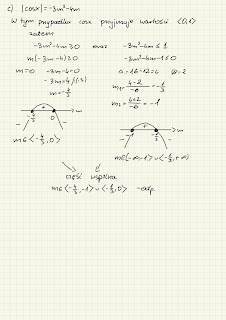 c) |cosx| = -3m²-4m
W tym przypadku cosx przyjmuje wartości <0,1>
zatem
-3m²-4m ≥ 0 oraz -3m²-4m ≤ 1
m(-3m-4) ≥ 0 -3m²-4m-1 ≤ 0
m=0 -3m-4=0 Δ=16-12=4 √Δ=2
-3m=4 /:(-3) m₁= 4-2/-6 = -1/3
m=-4/3 m₂= 4+2/-6 = -1
+ m
- -4/3 0 -
+ m
- -1 -1/3 -
m∈<-4/3,0>
m∈(-∞,-1>∪<-1/3,+∞)
część wspólna
m∈<-4/3,-1>∪<-1/3,0> -odp.